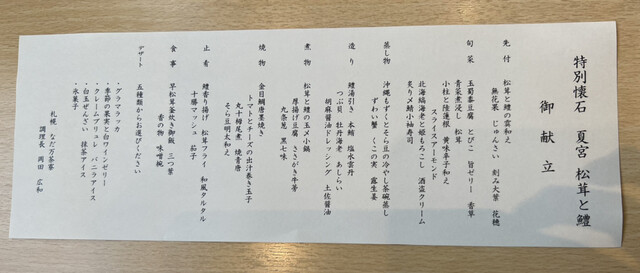 特別懐石 夏宮 松茸と鱧
御献立
先付 松茸と鱧の雲和え
無花果 じゅんさい 刻み大葉 花穂
旬菜 玉蜀黍豆腐 とびこ 旨ゼリー 香草
青菜煮浸し 松茸
小柱と陸蓮根 黄味辛子和え
スライスアーモンド
北海縞海老と姫もろこし 酒盗クリーム
炙り〆鯖小袖寿司
蒸し物 沖縄もずくとそら豆の冷やし茶碗蒸し
ずわい蟹 くこの実 露生姜
造り 鱧湯引き 本鮪 塩水雲丹
つぶ貝 牡丹海老 あしらい
胡麻醤油ドレッシング 土佐醤油
煮物 松茸と鱧の玉〆小鍋
厚揚げ豆腐 ささがき牛蒡
九条葱 黒七味
焼物 金目鯛吉墨焼き
トマトとチーズの出汁巻き玉子
丸十梔尾煮 焼青唐
そら豆明太和え
止肴 鱧香り揚げ 松茸フライ 和風タルタル
十勝マッシュ 茄子
食事 早松茸釜炊き御飯 三つ葉
香の物 味噌椀
デザート 五種類からお選びください
・グラマラッカ
・季節の果実と白ワインゼリー
・クレームブリュレ バニラアイス
・白玉ぜんざい 抹茶アイス
・水菓子
札幌 なだ万茶寮
調理長 岡田 広和